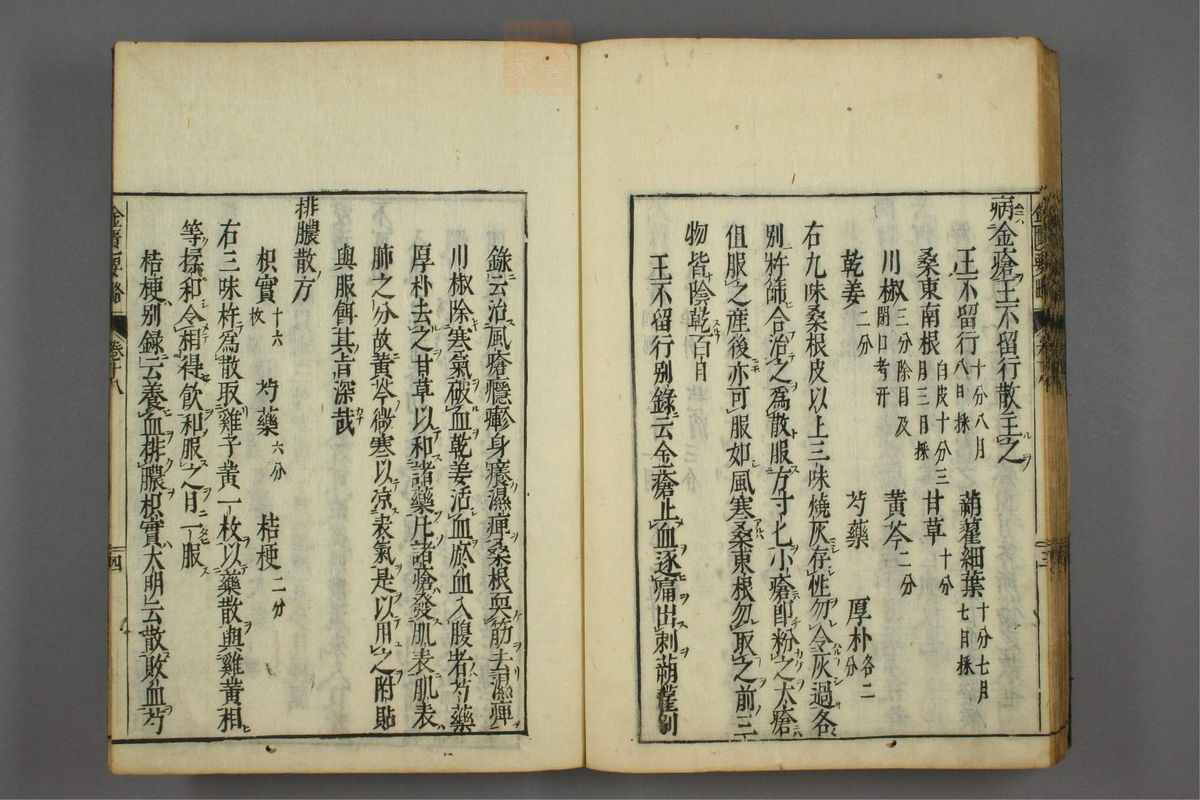 病金瘡王不留行散主之
王不留行十分八月八日採 蒴藋細葉十分七月七日採
桑東南根白皮十分三月三日採 甘草十分
川椒三分除目及閉口者汗 黃芩二分
乾姜二分 芍藥 厚朴各二分
右九味桑根皮以上三味燒灰存性勿令灰過各
別杵篩合治之爲散服方寸匕小瘡即粉之大瘡
但服之産後亦可服如風寒桑東根勿取之前三
物皆陰乾百日
王不留行別錄云金瘡止血逐痛出刺蒴藋別
錄云治風瘡癮𤺋身痒濕痺桑根
川椒除寒氣破血乾姜活血瘀血入腹者芍藥
厚朴去之甘草以和諸藥凡諸瘡發肌表肌表
肺之分故黃芩微寒以凉表氣是以用之附貼
與服餌其旨深哉
排膿散方
枳實十六枚 芍藥六分 桔梗二分
右三味杵爲散取雞子黃一枚以藥散與雞黃相
等揉和令相得飲和服之日一服
桔梗別錄云養血排膿枳實大明云散敗血芍
金匱要略 卷十八 四